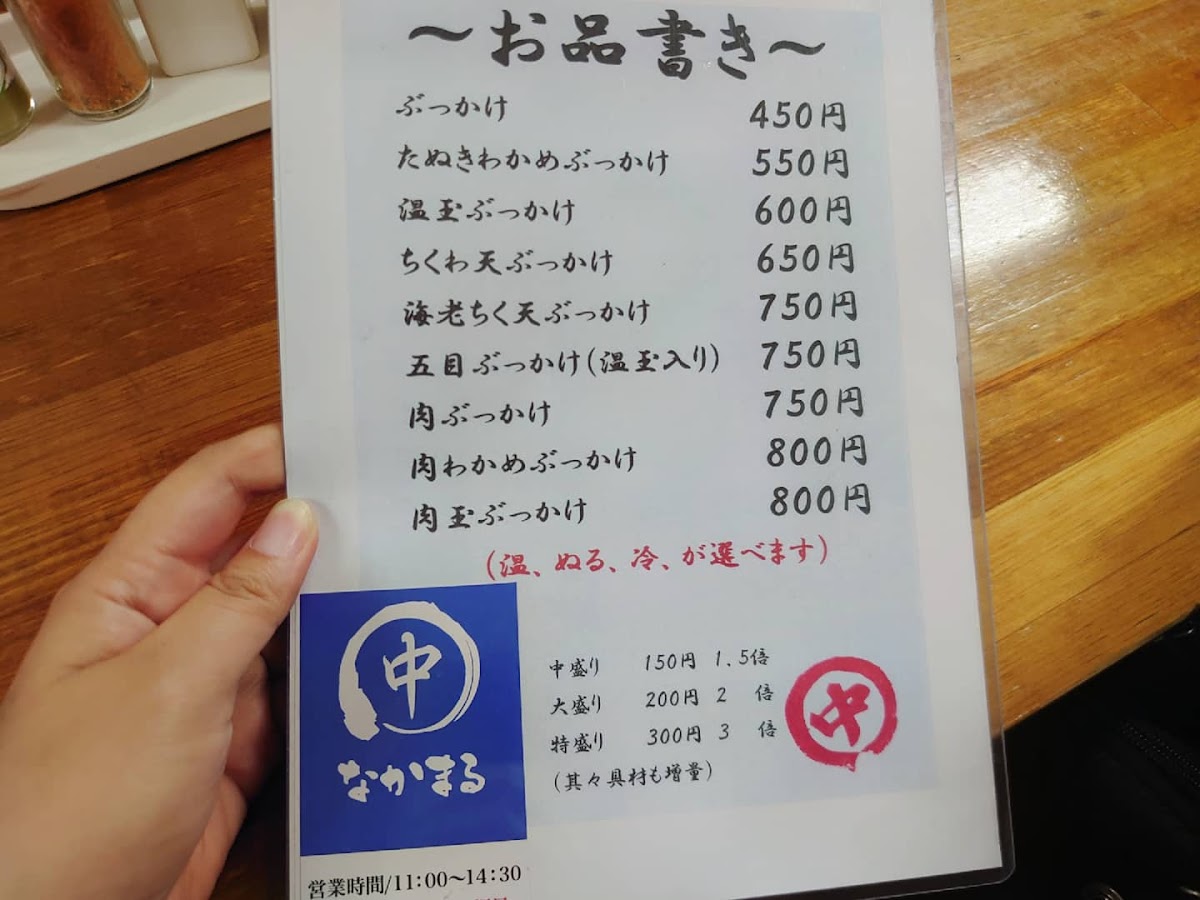 ～お品書き～
ぶっかけ 450円
たぬきわかめぶっかけ 550円
温玉ぶっかけ 600円
ちくわ天ぶっかけ 650円
海老ちく天ぶっかけ 750円
五目ぶっかけ(温玉入り) 750円
肉ぶっかけ 750円
肉わかめぶっかけ 800円
肉玉ぶっかけ 800円
(温、ぬる、冷、が選べます)
中盛り 150円 1.5倍
大盛り 200円 2 倍
特盛り 300円 3 倍
(其々具材も増量)
中
中
なかまる
営業時間/11:00〜14:30